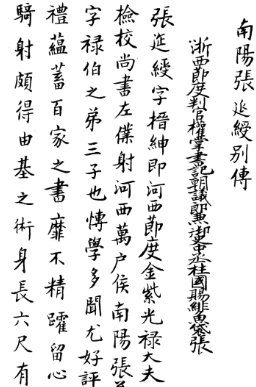 南陽張延綬別傳
浙西節度判官權掌書記朝議郎兼御史中丞柱國賜緋魚袋張
張延綬字搢紳即河西節度金紫光祿大夫
檢校尚書左僕射河西萬戶侯南陽張
字祿伯之弟三子也愽學多聞尤好評
禮蘊蓄百家之書靡不精躍留心
騎射頗得由基之術身長六尺有